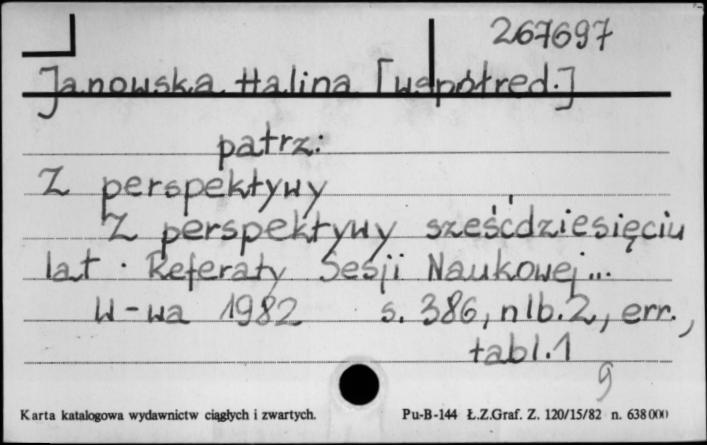 267697
Janowska Halina [współred.]
patrz:
Z perspektywy
Z perspektywy sześćdziesięciu
lat. Referaty Sesji Naukowej...
W-wa 1982 s. 386, nlb. 2, err.,
tabl. 1
9
Karta katalogowa wydawnictw ciągłych i zwartych. Pu-B-144 Ł.Z.Graf. Z. 120/15/82 n. 638000